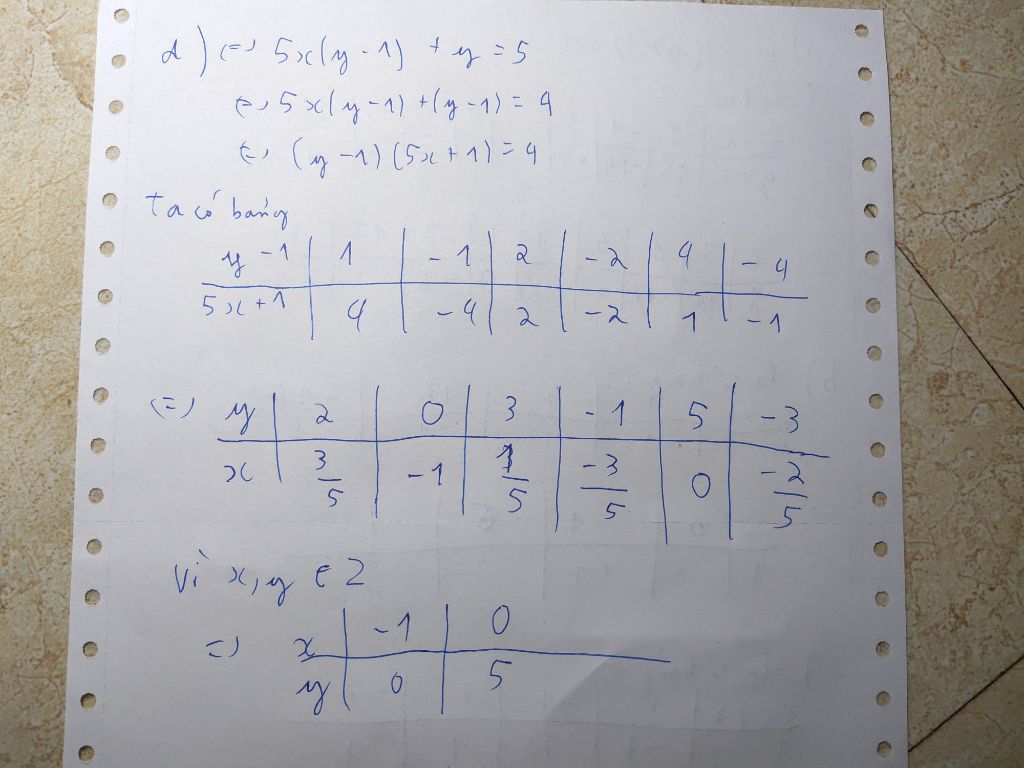 d) (=) 5x(y-1) + y = 5
(=) 5x(y-1) + (y-1) = 4
(=) (y-1)(5x+1) = 4
ta có bảng
y-1 | 1 | -1 | 2 | -2 | 4 | -4
5x+1 | 4 | -4 | 2 | -2 | 1 | -1
(=) y | 2 | 0 | 3 | -1 | 5 | -3
x | 3/5 | -1 | 1/5 | -3/5 | 0 | -2/5
Vì x, y ∈ Z
=) x | -1 | 0
y | 0 | 5